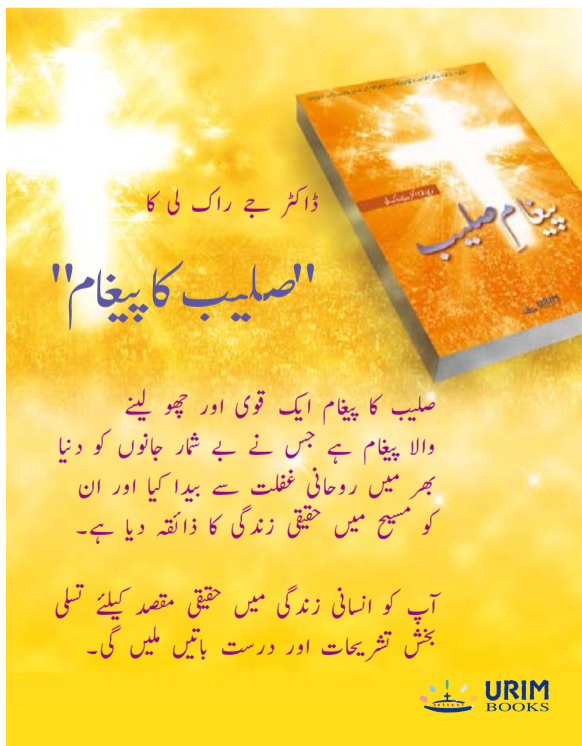 ڈاکٹر جے راک لی کا
"صلیب کا پیغام"
پیغامِ صلیب
URIM
صلیب کا پیغام ایک قوی اور چھو لینے
والا پیغام ہے جس نے بے شمار جانوں کو دنیا
بھر میں روحانی غفلت سے بیدا کیا اور ان
کو مسیح میں حقیقی زندگی کا ذائقہ دیا ہے۔
آپ کو انسانی زندگی میں حقیقی مقصد کیلئے تسلی
بخش تشریحات اور درست باتیں ملیں گی۔
URIM
BOOKS